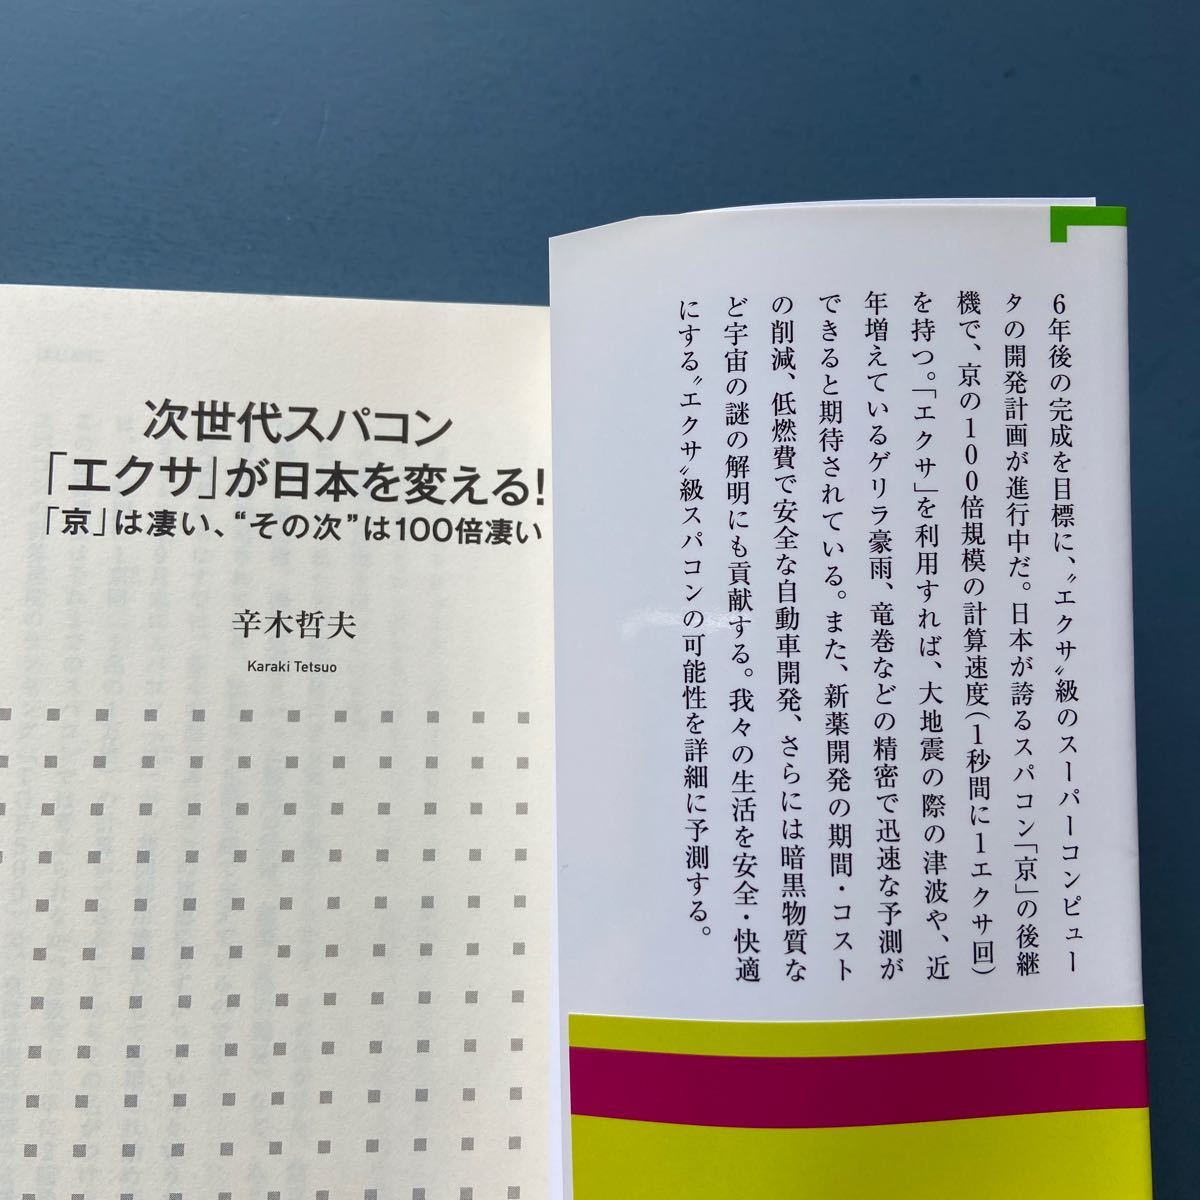 次世代スパコン
「エクサ」が日本を変える!
「京」は凄い、“その次”は100倍凄い
辛木哲夫
Karaki Tetsuo
6年後の完成を目標に、〝エクサ〟級のスーパーコンピュー
タの開発計画が進行中だ。日本が誇るスパコン「京」の後継
機で、京の100倍規模の計算速度(1秒間に1エクサ回)
を持つ。「エクサ」を利用すれば、大地震の際の津波や、近
年増えているゲリラ豪雨、竜巻などの精密で迅速な予測が
できると期待されている。また、新薬開発の期間・コスト
の削減、低燃費で安全な自動車開発、さらには暗黒物質な
ど宇宙の謎の解明にも貢献する。我々の生活を安全・快適
にする〝エクサ〟級スパコンの可能性を詳細に予測する。